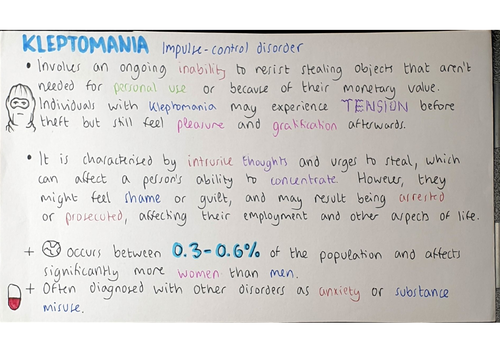 KLEPTOMANIA Impulse-control disorder
• Involves an ongoing inability to resist stealing objects that aren't
needed for personal use or because of their monetary value.
Individuals with kleptomania may experience TENSION before
theft but still feel pleasure and gratification afterwards.
• It is characterised by intrusive thoughts and urges to steal, which
can affect a person's ability to concentrate. However, they
might feel shame or guilt, and may result being arrested
or prosecuted, affecting their employment and other aspects of life.
+ occurs between 0.3-0.6% of the population and affects
significantly more women than men.
+ Often diagnosed with other disorders as anxiety or substance
misuse.